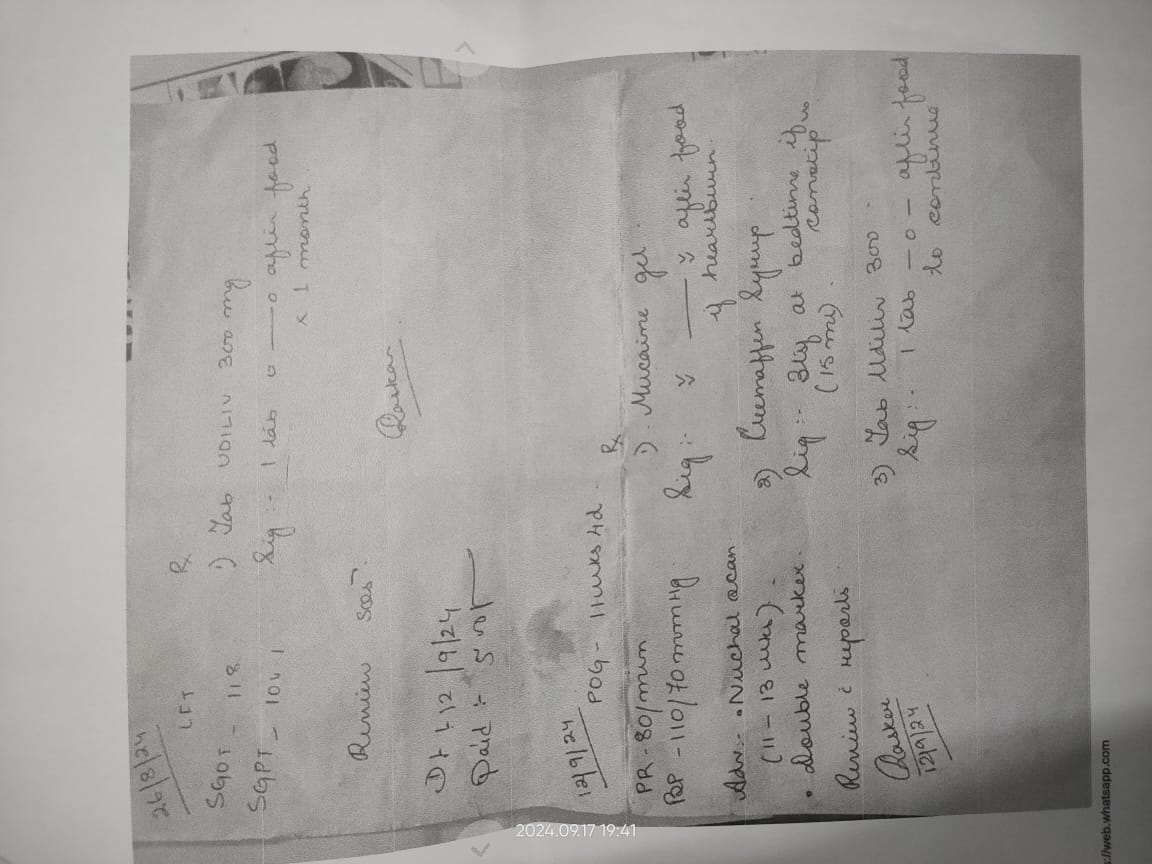 26/8/24
LFT
SGOT - 118
SGPT - 104.1
Rx
1) Tab UDILIV 300 mg
Sig :- 1 tab 0 — 0 after food
x 1 month.
Review SOS.
Dt :- 12/9/24
Paid :-
12/9/24
POG - 11wks 4d.
PR - 80/min
BP - 110/70 mmHg.
Adv :- • Nuchal scan
(11 - 13 wks).
• Double marker.
Review c reports.
12/9/24
Rx
1). Mucaine gel.
Sig :- — after food
if heartburn.
2) Cremaffin Syrup.
Sig :- 3tsf at bedtime if
(15 ml).
constip
3) Tab Udiliv 300.
Sig :- 1 tab - 0 - after food
to continue
2024.09.17 19:41
s://web.whatsapp.com